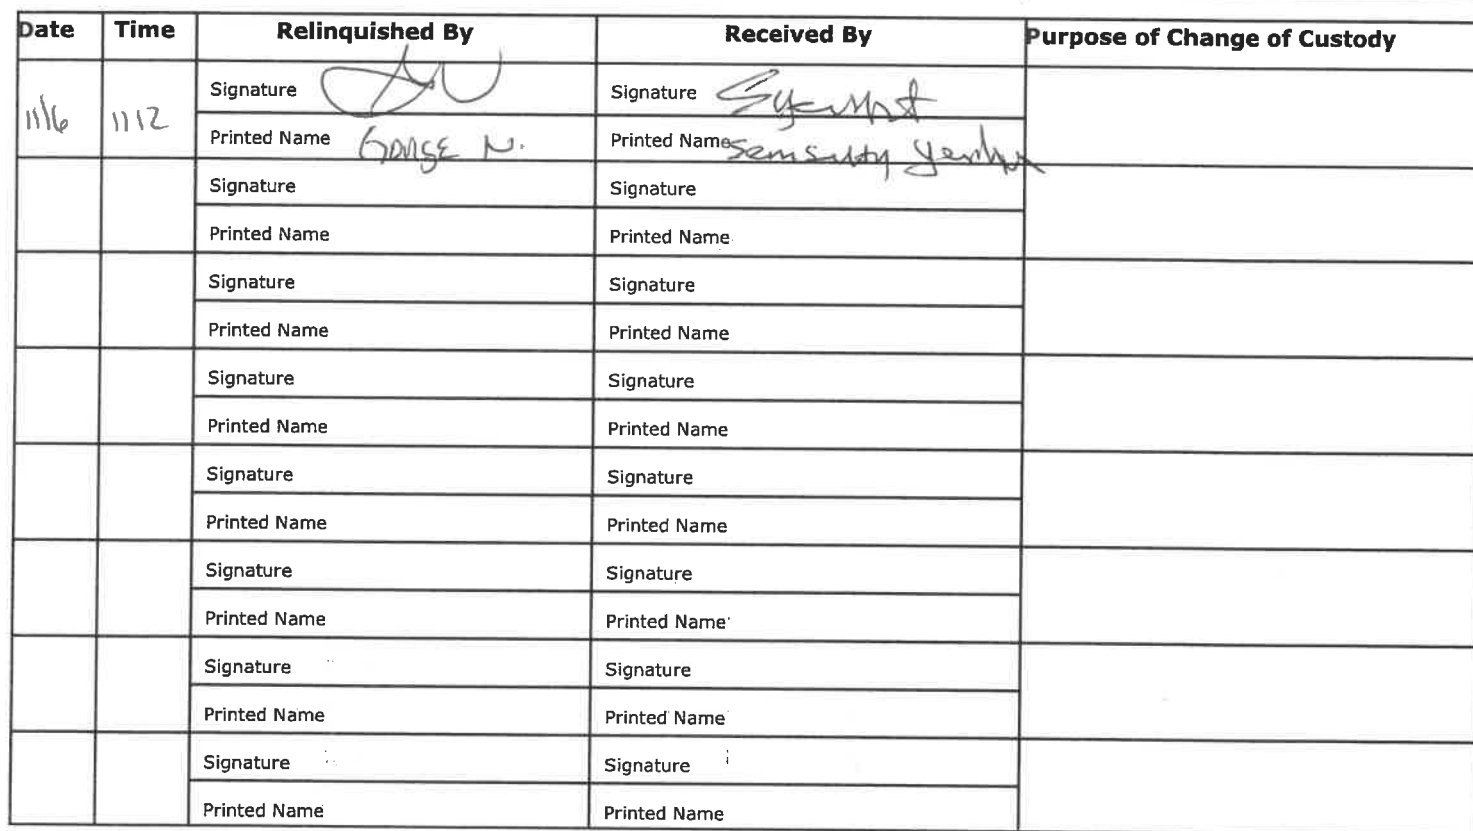 Date Time Relinquished By Received By Purpose of Change of Custody
Signature Signature
11/6 1112
Printed Name George N. Printed Name
Signature Signature
Printed Name Printed Name
Signature Signature
Printed Name Printed Name
Signature Signature
Printed Name Printed Name
Signature Signature
Printed Name Printed Name
Signature Signature
Printed Name Printed Name
Signature Signature
Printed Name Printed Name
Signature Signature
Printed Name Printed Name